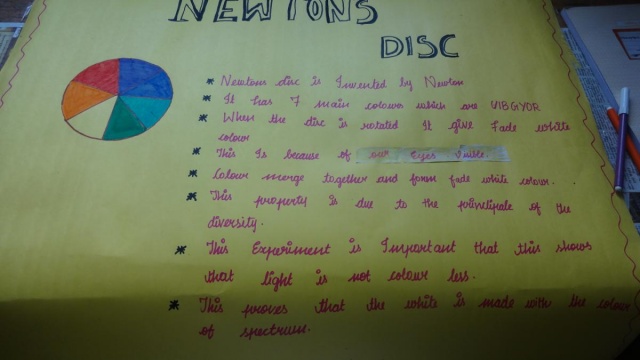 NEWTONS
DISC
* Newtons disc is Invented by Newton
* It has 7 main colour which are VIBGYOR
* When the disc is rotated It give Fade white
colour
* This Is because of our Eyes Visible.
* Colour merge together and form fade white colour.
* This property is due to the principale of the
diversity.
* This Experiment is Important that this shows
that light is not colour less.
* This proves that the white is made with the colour
of spectrum.